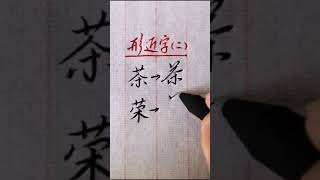 形近字(二)
茶→茶
荣→